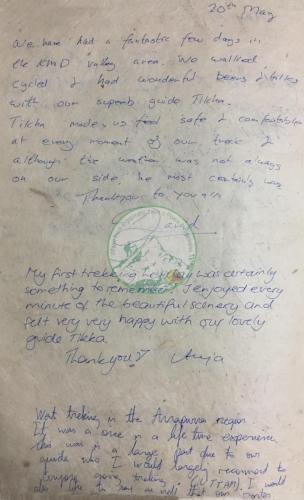 20th May
We have had a fantastic few days in
the valley area. We walked,
cycled & had wonderful beers & talks
with our superb guide Tilcha.
Tilcha made us feel safe & comfortable
at every moment of our trek &
although the weather was not always
on our side, he most certainly was
Thankyou to you all
My first trekking holiday was certainly
something to remember. I enjoyed every
minute of the beautiful scenery and
felt very very happy with our lovely
guide Tilka.
Thankyou!
Went treking in the Annapurna region
It was a once in a life time experience
this was in a large part due to our
guide who I would largely recommend to
anyone going treking I would
also like to say as well that our